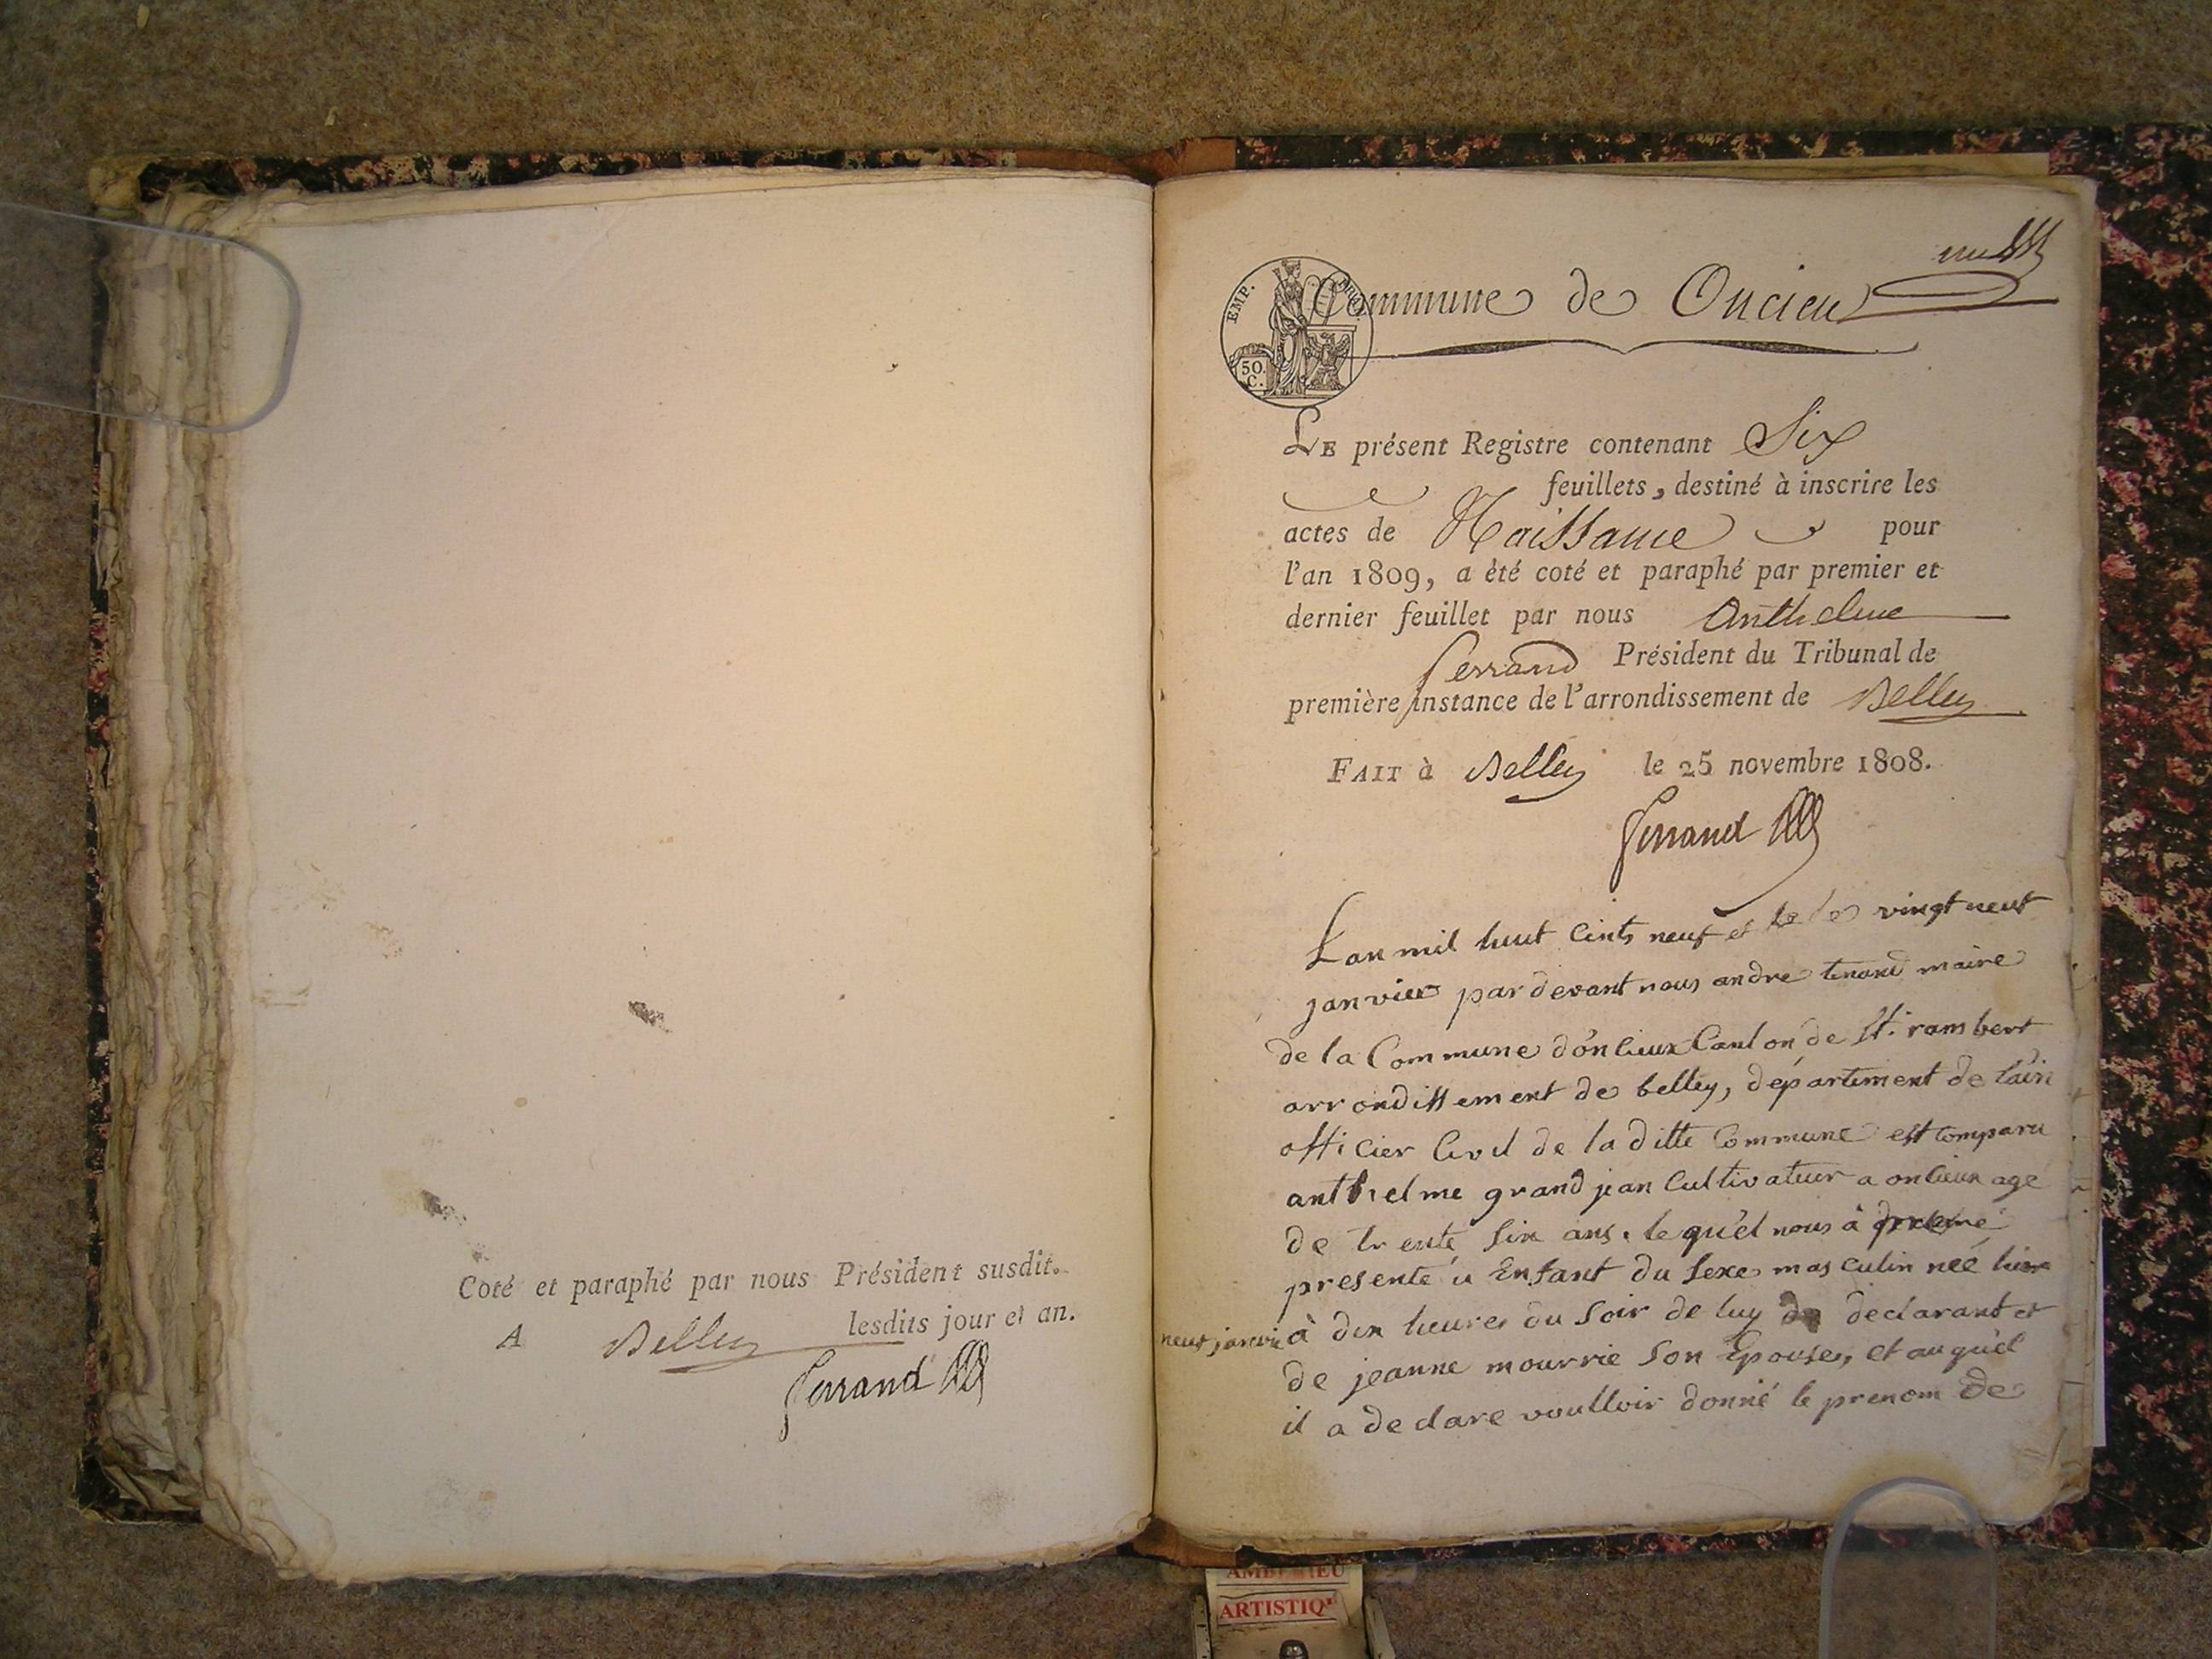 Coté et paraphé par nous Président susdit.
A Belley lesdits jour et an.
Ferrand
EMP.
50.
C.
Commune de Oncieu
LE présent Registre contenant Six
feuillets, destiné à inscrire les
actes de Naissance pour
l'an 1809, a été coté et paraphé par premier et
dernier feuillet par nous Anthelme
Ferrand Président du Tribunal de
première instance de l'arrondissement de Belley
FAIT à Belley le 25 novembre 1808.
Ferrand
Lan mil huit Cents neuf et le vingt neuf
janvier par devant nous andre tenand maire
de la Commune d'onlieux Canton de St. rambert
arrondissement de belley, département de l'ain
officier Civil de la ditte Commune est comparu
anthelme grand jean Cultivateur a onlieux agé
de trente six ans, lequ'el nous à
presenté u Enfant du sexe masculin neé hier
neuf janvie à dix heures du soir de luy declarant et
de jeanne mourrie son Epouse, et auqu'el
il a declare voulloir donné le prenom de
ARTISTIQ